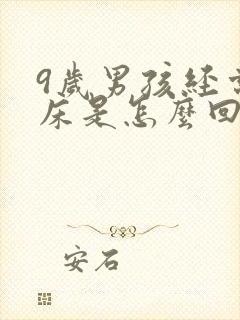 9歲男孩經常
床是怎麼回
安石